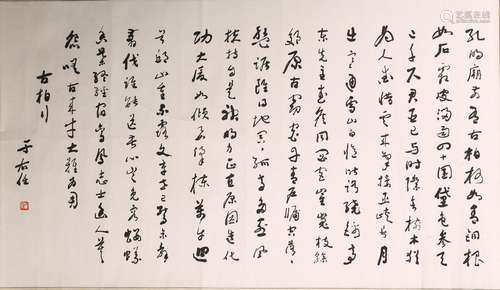 孔明廟前有古柏柯如青銅根
如石霜皮溜雨四十圍黛色參天
二千尺君臣已與時際會樹木猶
為人愛惜雲來氣接巫峽長月
出寒通雪山白憶昨路繞錦亭
東先主武侯同閟宮崔嵬枝幹
郊原古窈窕丹青戶牖空落落
盤踞雖得地冥冥孤高多烈風
扶持自是神明力正直原因造化
功大廈如傾要梁棟萬牛迴
首邱山重不露文章世已驚未辭
剪伐誰能送苦心豈免容螻蟻
香葉終經宿鸞鳳志士幽人莫
怨嗟古來才大難為用
古柏行
于右任
艺典中国